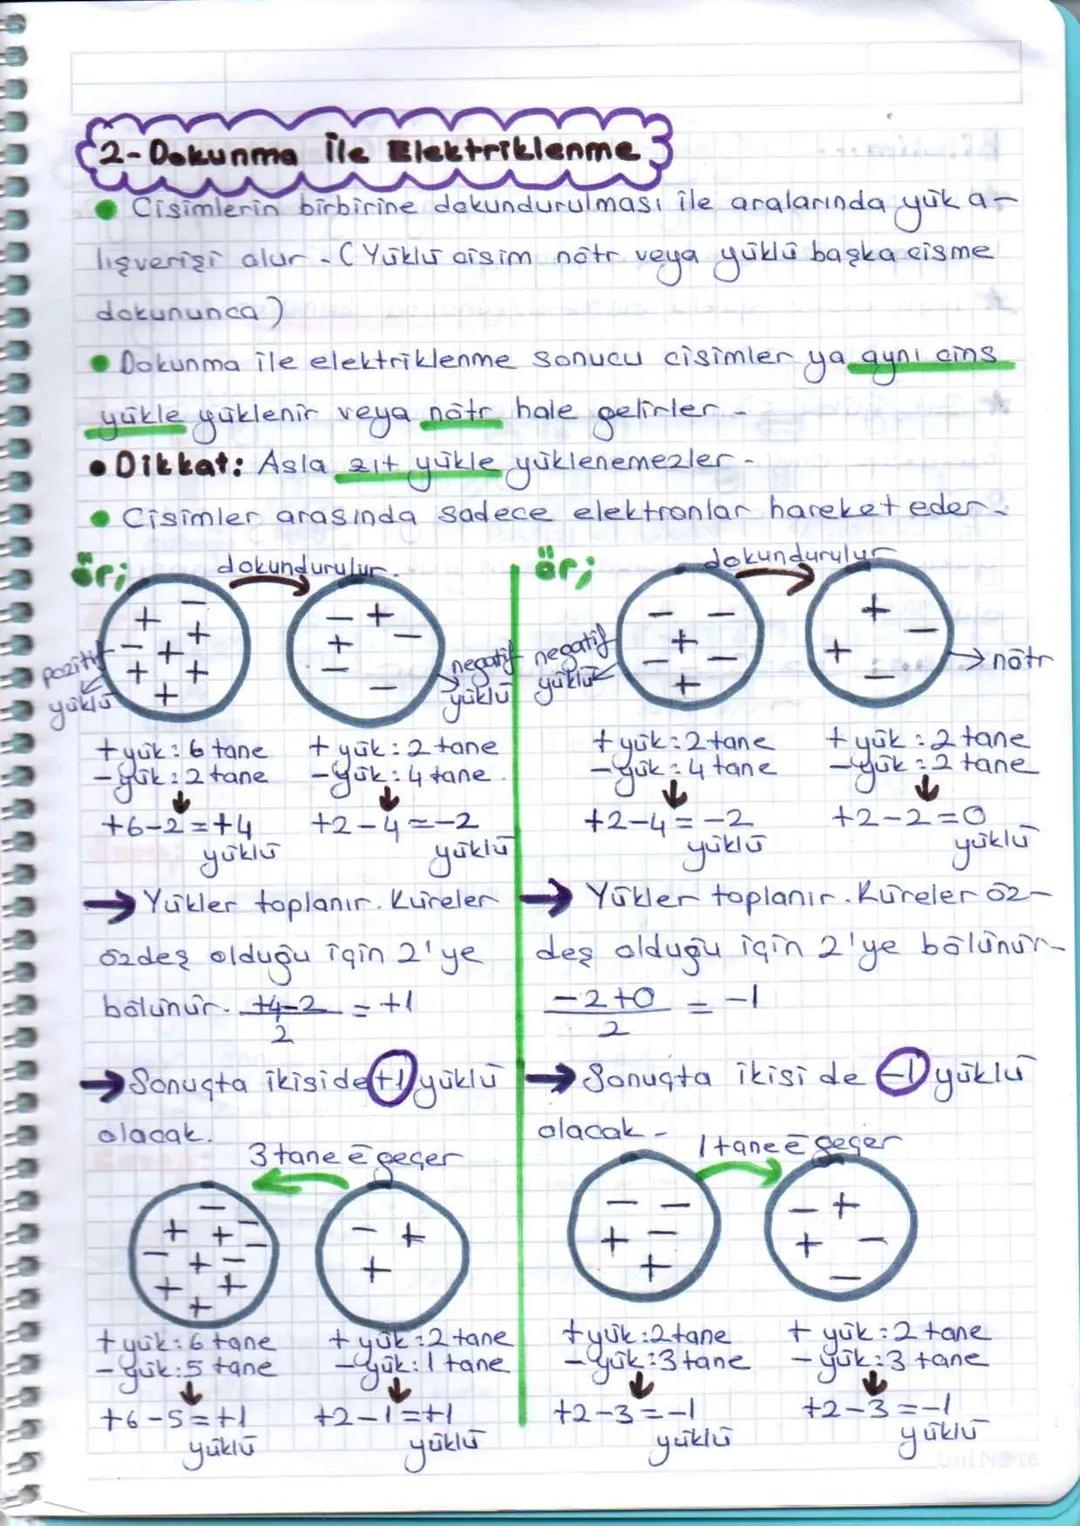 2- Dokunma ile Elektriklenme
• Cisimlerin birbirine dokundurulması ile aralarında yük a-
lışverişi olur. (Yüklü cisim nötr veya yüklü başka cisme
dokununca)
• Dokunma ile elektriklenme sonucu cisimler ya aynı cins
yükle yüklenir veya nötr hale gelirler.
• Dikkat: Asla zıt yükle yüklenemezler.
• Cisimler arasında sadece elektronlar hareket eder.
ör;
dokundurulur.
pozitif
yüklü
negatif
yüklü
+ yük: 6 tane + yük: 2 tane
- yük: 2 tane - yük: 4 tane.
+6-2=+4 +2-4=-2
yüklü yüklü
→ Yükler toplanır. Küreler
özdeş olduğu için 2'ye
bölünür. +4-2 = +1
2
→ Sonuçta ikiside +1 yüklü
olacak.
3 tane e⁻ geçer
+ yük: 6 tane + yük: 2 tane
- yük: 5 tane - yük: 1 tane
+6-5=+1 +2-1=+1
yüklü yüklü
ör;
dokundurulur
negatif
yüklü
nötr
+ yük: 2 tane + yük: 2 tane
- yük: 4 tane - yük: 2 tane
+2-4=-2 +2-2=0
yüklü yüklü
→ Yükler toplanır. Küreler öz-
deş olduğu için 2'ye bölünür.
-2+0 = -1
2
→ Sonuçta ikisi de -1 yüklü
olacak.
1 tane e⁻ geçer
+ yük: 2 tane + yük: 2 tane
- yük: 3 tane - yük: 3 tane
+2-3=-1 +2-3=-1
yüklü yüklü
UniNote